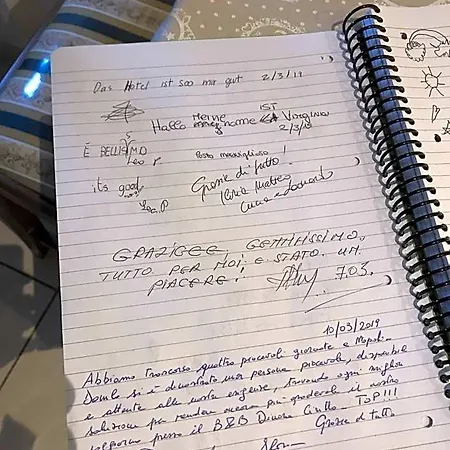 Das Hotel ist soo mir gut 2/3/19
Hallo Meine name IST Virginia
2/3/19
È BELLISIMO
Leo P
Posto meraviglioso !
its good
Leo.P
Grazie di tutto
GRAZIGEE, GENTILISSIMO.
TUTTO PER NOI, E STATO UN
PIACERE. 7.03.
10/03/2019
Abbiamo trascorso quattro piacevoli giornate a Napoli.
si è dimostrato una persona piacevole, disponibile
e attenta alle nostre esigenze, trovando ogni miglior
soluzione per rendere ancora più gradevole il nostro
soggiorno presso il B&B Dimora Giulia. TOP!!!
Grazie di tutto